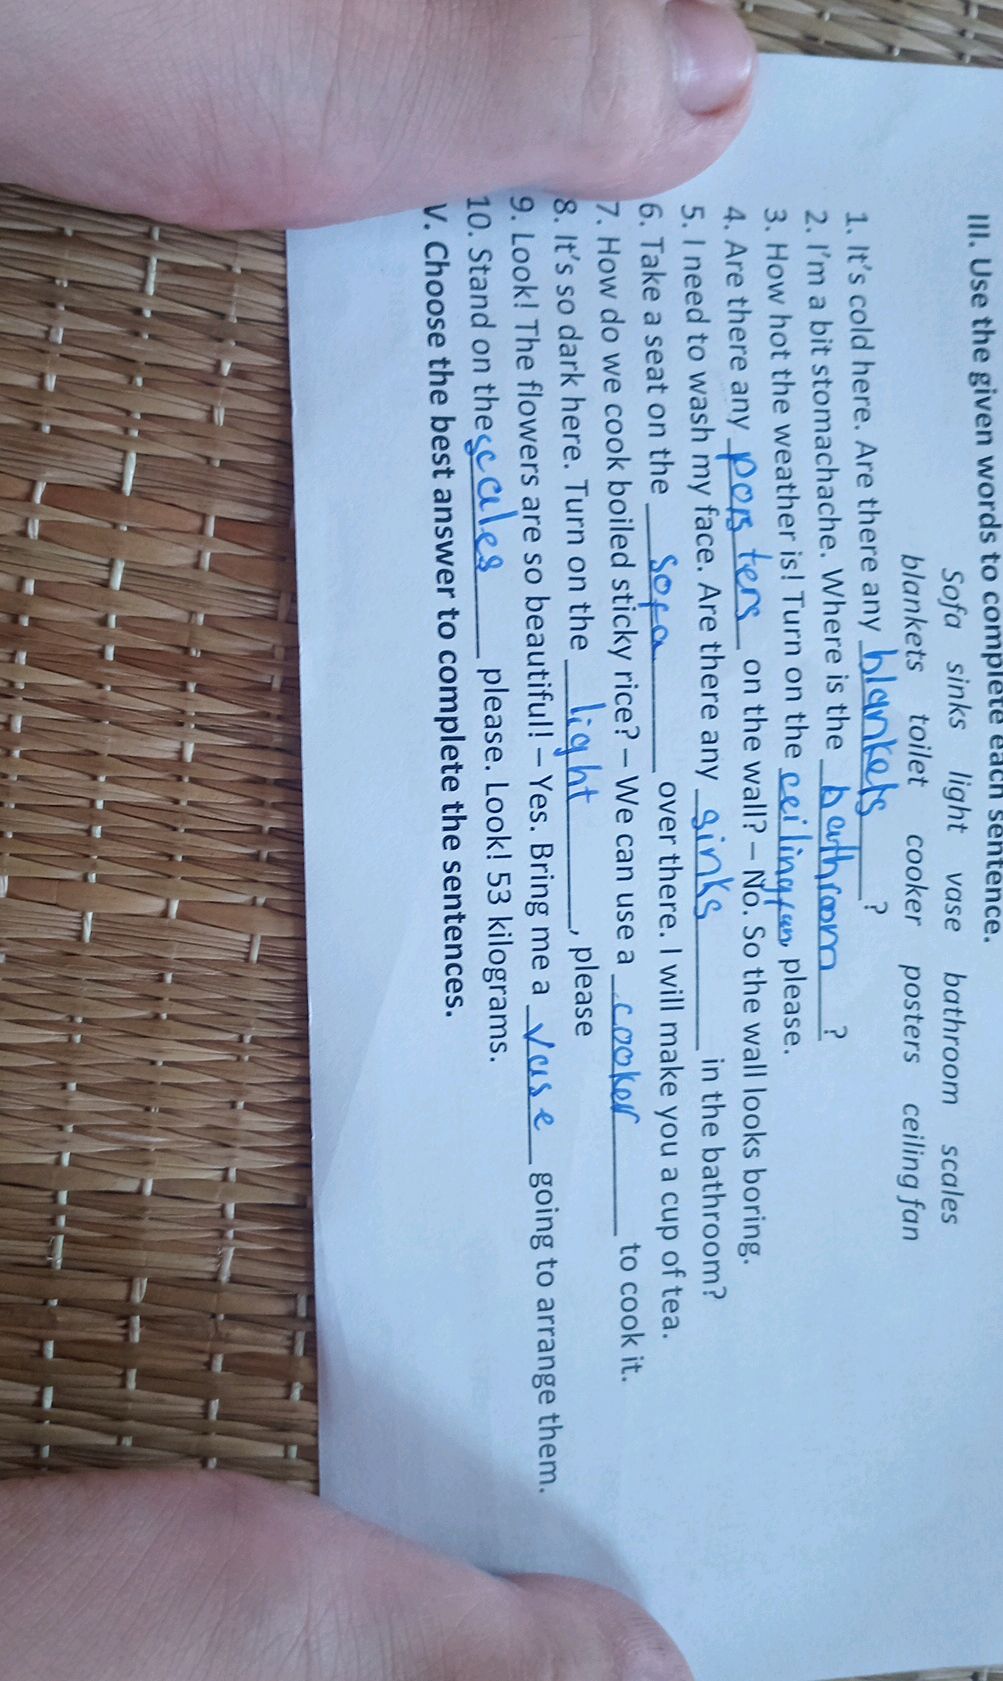 III. Use the given words to complete each sentence.
Sofa sinks light vase bathroom scales
blankets toilet cooker posters ceiling fan
1. It's cold here. Are there any blankets ?
2. I'm a bit stomachache. Where is the bathroom ?
3. How hot the weather is! Turn on the ceiling fan, please.
4. Are there any porsters on the wall? – No. So the wall looks boring.
5. I need to wash my face. Are there any sinks in the bathroom?
6. Take a seat on the sofa over there. I will make you a cup of tea.
7. How do we cook boiled sticky rice? – We can use a cooker to cook it.
8. It's so dark here. Turn on the light, please
9. Look! The flowers are so beautiful! – Yes. Bring me a vase going to arrange them.
10. Stand on the scales please. Look! 53 kilograms.
V. Choose the best answer to complete the sentences.